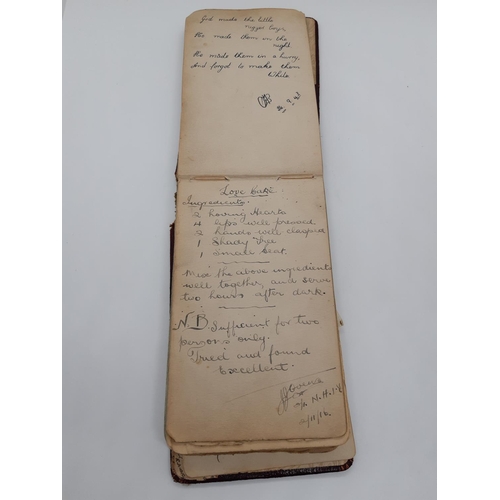 God made the little
nigger boys,
He made them in the
night.
He made them in a hurry,
And forgot to make them
White.
Love Cake.
Ingredients.
2 loving Hearts
4 lips well pressed
2 hands well clasped
1 Shady Tree
1 Small Seat.
Mix the above ingredients
well together, and serve
two hours after dark.
N B Sufficient for two
persons only.
Tried and found
Excellent.